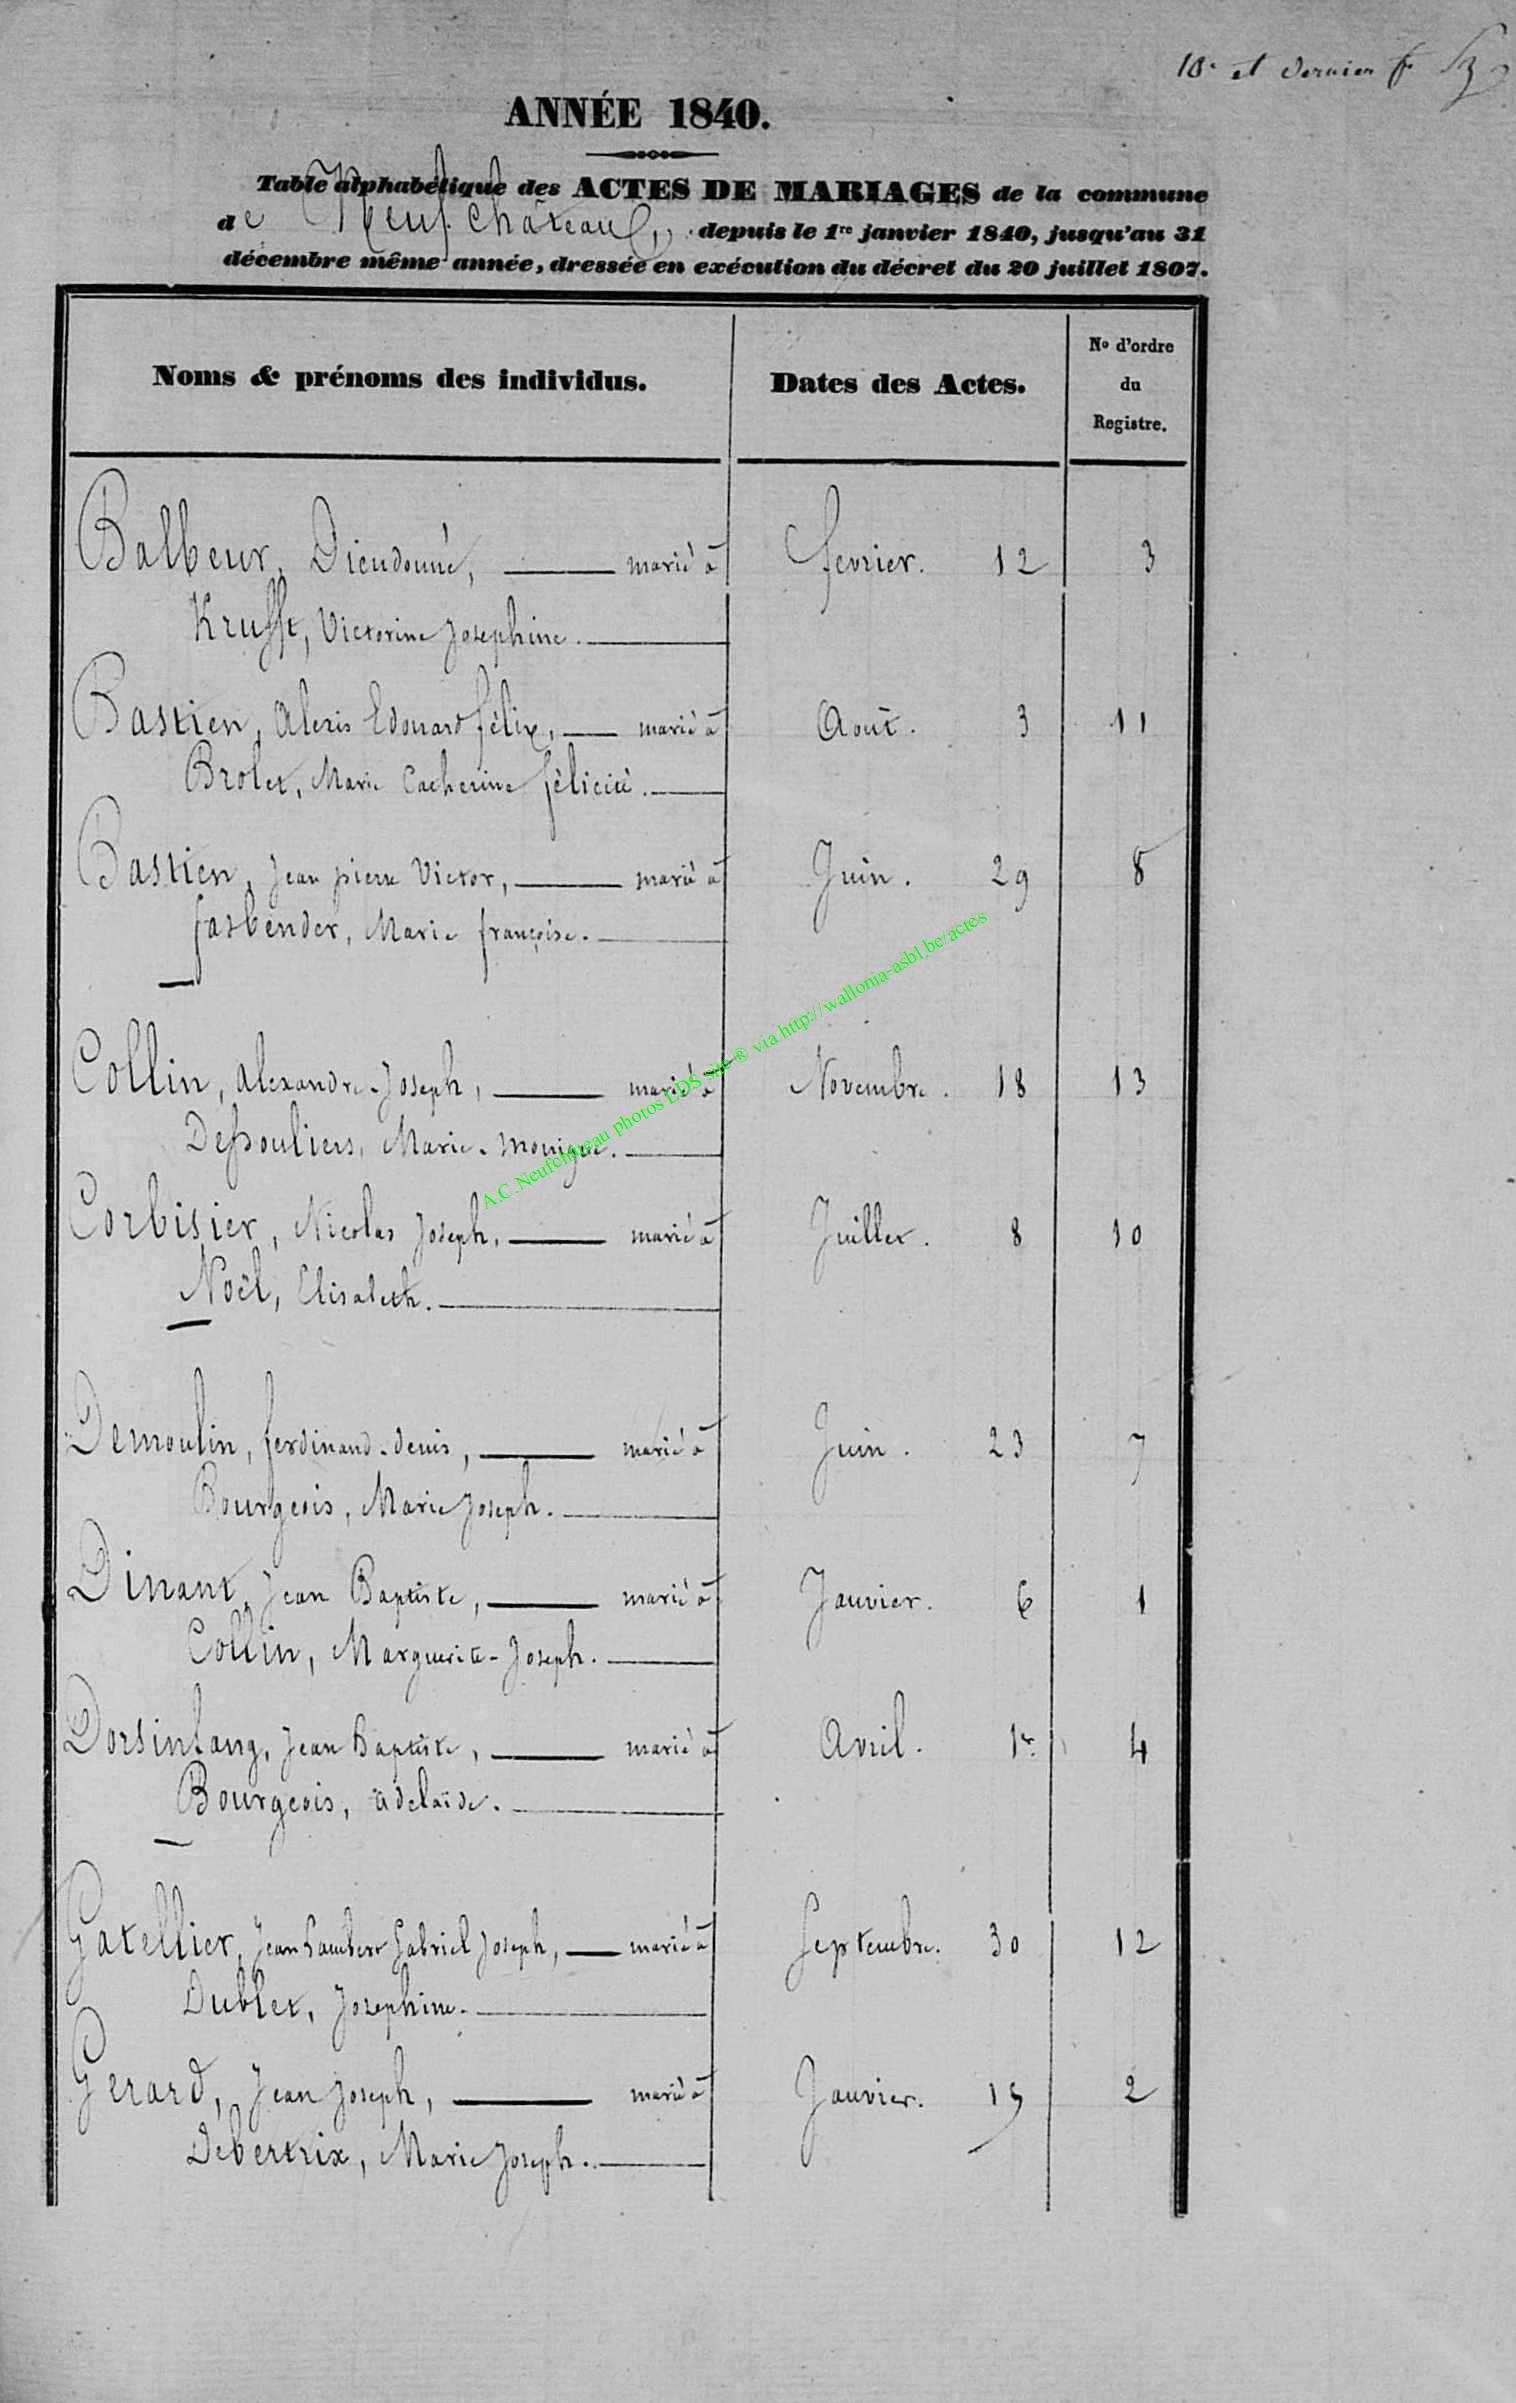 10e et dernier f
ANNÉE 1840.
Table alphabétique des ACTES DE MARIAGES de la commune
de Neufchâteau, depuis le 1re janvier 1840, jusqu'au 31
décembre même année, dressée en exécution du décret du 20 juillet 1807.
Noms & prénoms des individus. Dates des Actes. No d'ordre
du
Registre.
Balbeur, Dieudonné, marié à février. 12 3
Krufft, Victorine Josephine.
Bastien, Alexis Edouard félix, marié à Août. 3 11
Brolet, Marie Catherine félicité.
Bastien, Jean pierre Victor, marié à Juin. 29 8
fasbender, Marie françoise.
Collin, Alexandre-Joseph, marié à Novembre. 18 13
Dessouliers, Marie-monique.
Corbisier, Nicolas Joseph, marié à Juillet. 8 10
Noël, Elisabeth.
Demoulin, ferdinand-denis, marié à Juin. 23 7
Bourgeois, Marie Joseph.
Dinant, Jean Baptiste, marié à Janvier. 6 1
Collin, Marguerite-Joseph.
Dorsinfang, Jean Baptiste, marié à Avril. 1er 4
Bourgeois, adelaïde.
Gatellier, Jean Lambert Gabriel Joseph, marié à Septembre. 30 12
Dublet, Josephine.
Gerard, Jean Joseph, marié à Janvier. 15 2
Debertrix, Marie Joseph.
A.C.Neufchâteau photos LDS site ® via http://wallonia-asbl.be/actes